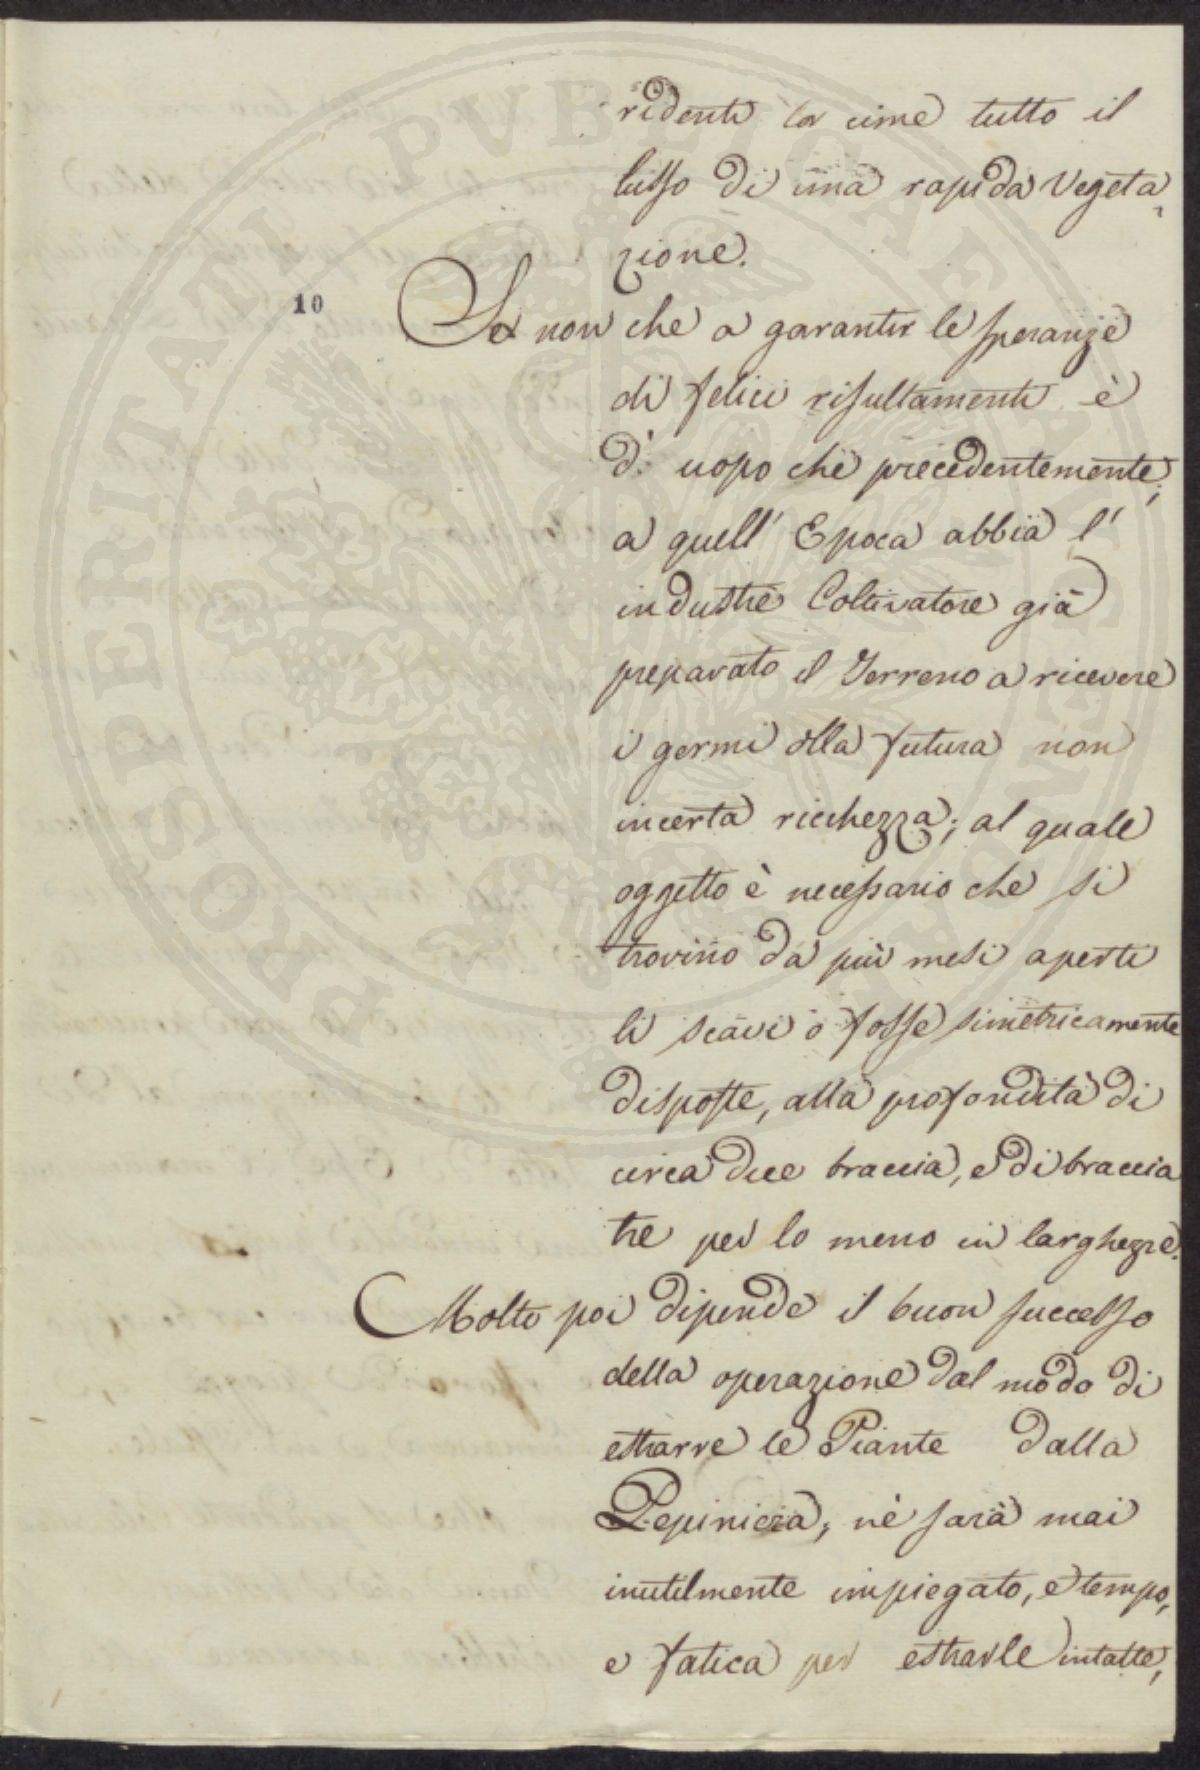 ridenti le cime tutto il
lusso di una rapida Vegeta
zione.
10
Se non che a garantir le speranze
di felici risultamenti è
d'uopo che precedentemente,
a quell' Epoca abbia l'
industre Coltivatore già
preparato il Terreno a ricevere
i germi dlla futura non
incerta ricchezza; al quale
oggetto è necessario che si
trovino da più mesi aperti
li scavi o fosse simetricamente
disposte, alla profondità di
circa due braccia, e di braccia
tre per lo meno in larghezze.
Molto poi dipende il buon successo
della operazione dal modo di
estrarre le Piante dalla
Pepiniera, nè sarà mai
inutilmente impiegato, e tempo,
e fatica per estrarle intatte,
PROSPERITATI PVBLICAE